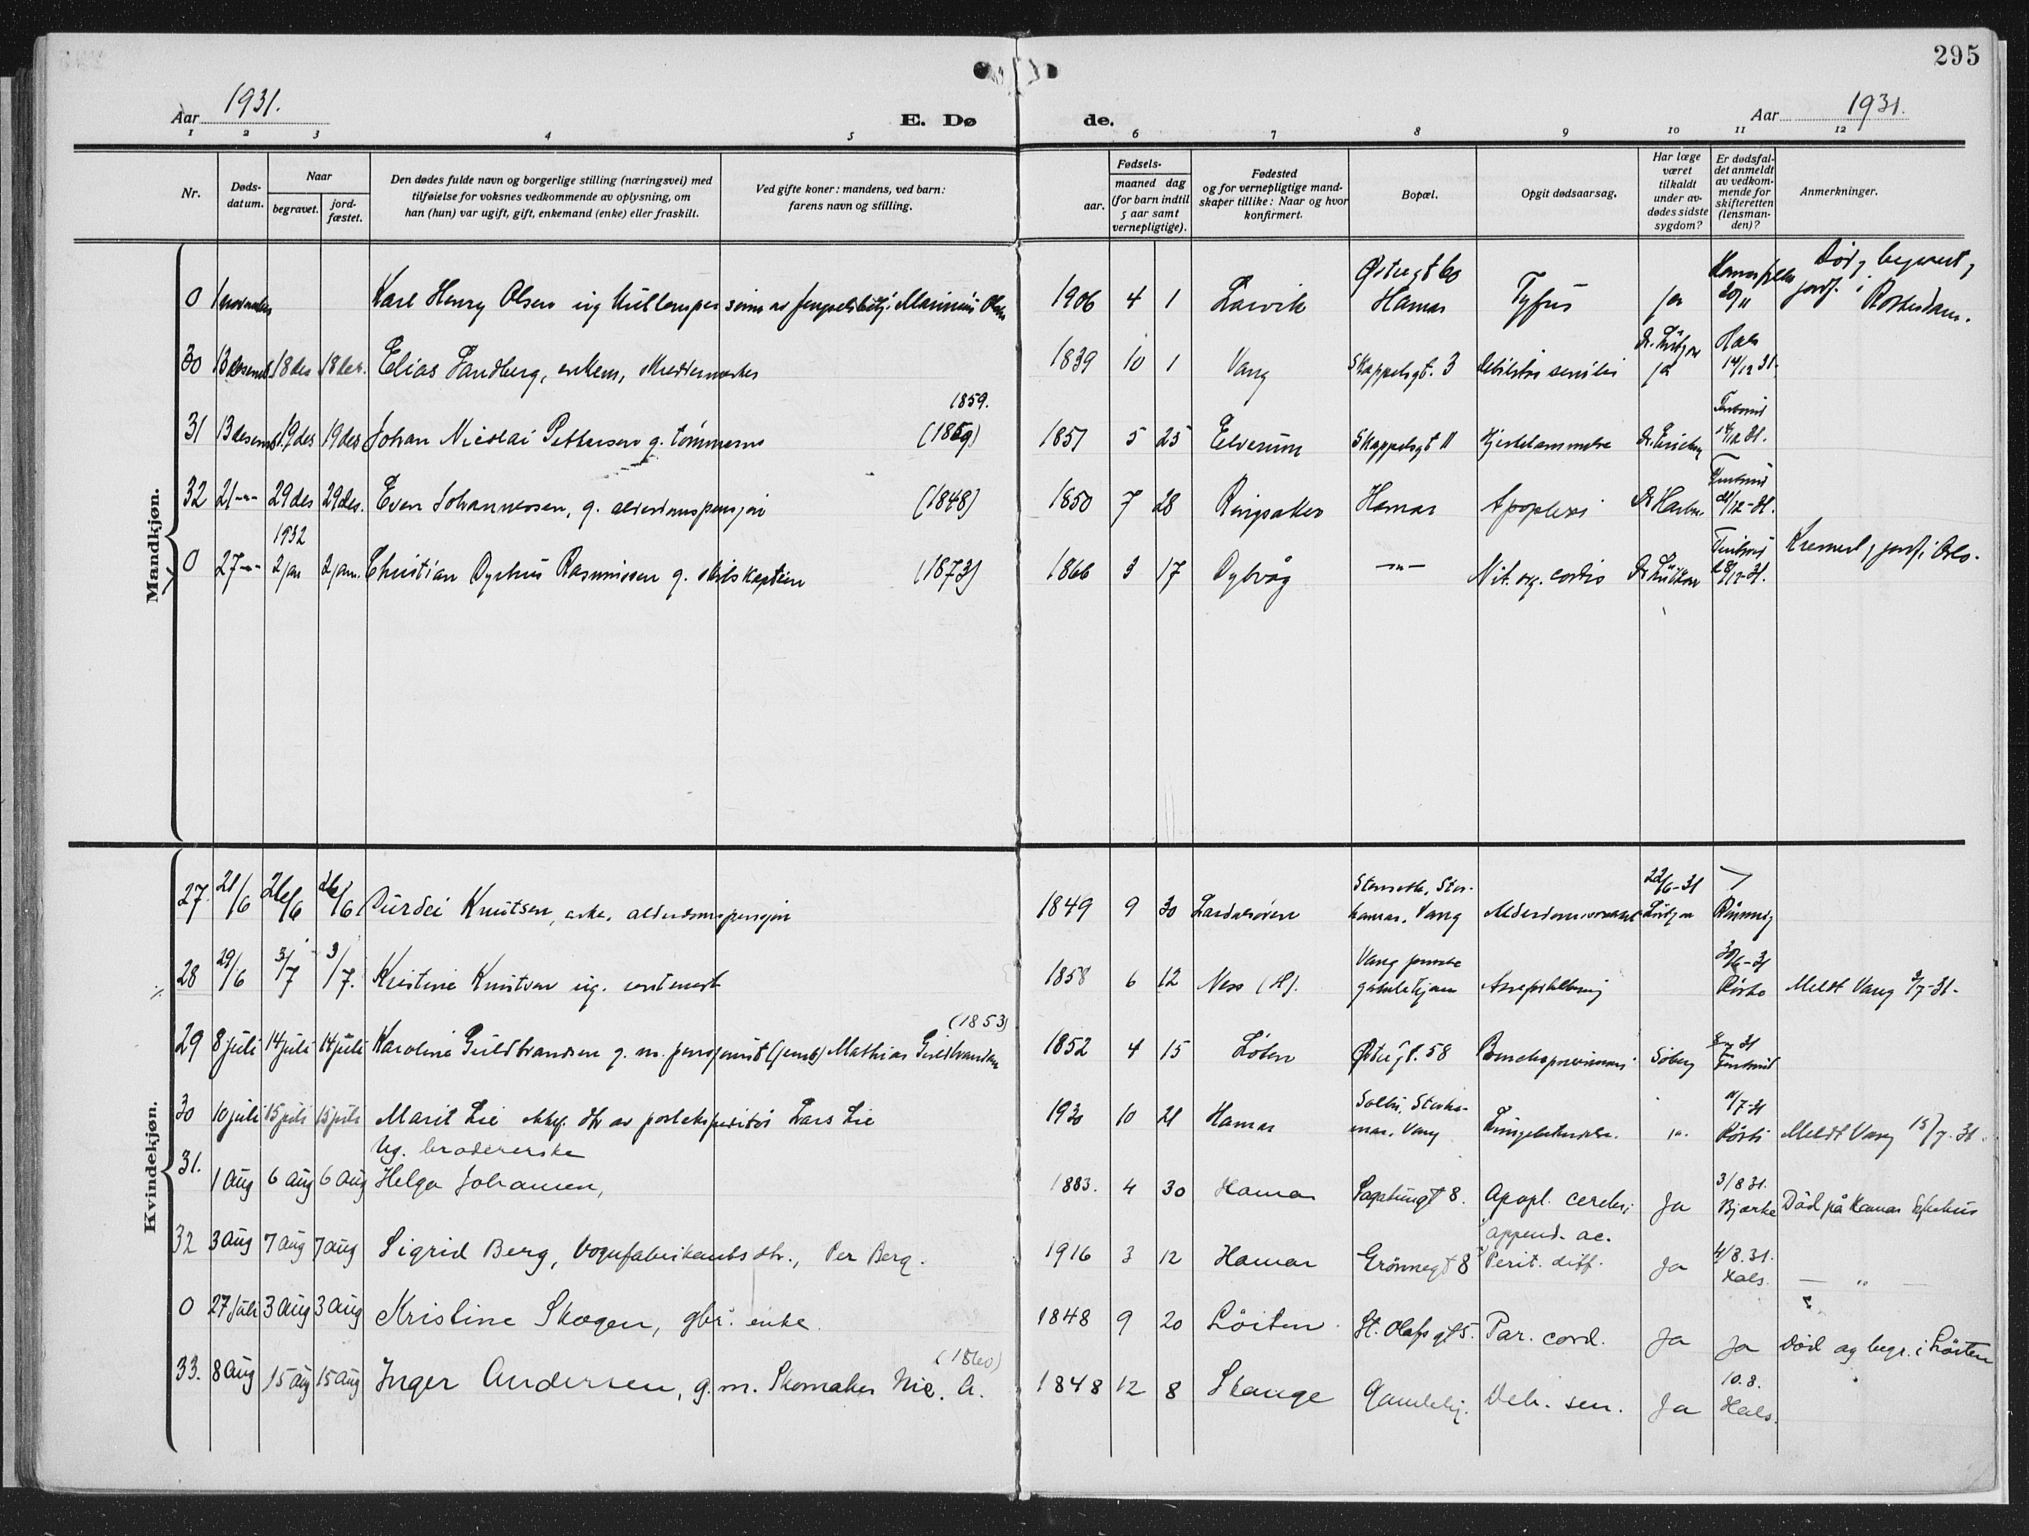 295
Aar 1931.
E. Dø de.
Aar 1931.
1 2 3 4 5 6 7 8 9 10 11 12
Nr.
Døds-
datum.
Naar
begravet.
jord-
fæstet.
Den dødes fulde navn og borgerlige stilling (næringsvei) med
tilføielse for voksnes vedkommende av oplysning, om
han (hun) var ugift, gift, enkemand (enke) eller fraskilt.
Ved gifte koner: mandens, ved barn:
farens navn og stilling.
Fødsels-
aar.
maaned dag
(for barn indtil
5 aar samt
vernepligtige).
Fødested
og for vernepligtige mand-
skaper tillike: Naar og hvor
konfirmert.
Bopæl.
Opgit dødsaarsag.
Har læge
været
tilkaldt
under av-
dødes sidste
sygdom?
Er dødsfal-
det anmeldt
av vedkom-
mende for
skifteretten
(lensman-
den)?
Anmerkninger.
Mandkjøn.
0 1 november Karl Henry Olsen ug kullemper sønn av Marinius Olsen 1906 4 1 Larvik Østregt 60 Hamar Tyfus ja 20/11 Død, begravet, jordf. i Rotterdam.
30 13 desemb. 18 des 18 des. Elias Sandberg, enkem, skreddermester 1839 10 1 Vang Skappelsgt. 3 debilitas senilis ja Hals 14/12 31.
1859.
31 13 desemb. 19 des 19 des Johan Nicolai Pettersen g. tømmerm (1869) 1851 5 25 Elverum Skappelsgt 11 Hjertelammelse 14/12 31.
32 21 -"- 29 des 29 des. Even Johannessen, g. alderdomspensjon (1848) 1850 7 28 Ringsaker Hamar Apoplexi 21/12-31.
1932
0 27 -"- 2 jan 2 jan. Christian Dyrhus Rasmussen g. skibskaptein (1873) 1866 3 17 Dybvåg -"- Vit. org. cordis 28/12-31. Kremert, jordf. i Oslo.
Kvindekjøn.
27. 21/6 26/6 26/6 Knutsen, enke, alderdomspensjon 1849 9 30 Lardalsøren Storhamar, Vang 22/6-31
28 29/6 3/7 3/7. Kristine Knutsen ug. 1858 6 12 Ness (H). Vang gamlehjem Åreforkalkning 30/6-31 Meldt Vang 3/7-31.
(1853)
29 8 juli 14 juli 14 juli Karoline Guldbrandsen g. m. Mathias Guldbrandsen 1852 4 15 Løten Østregt. 58 Søberg
30 10 juli 15 juli 15 juli Marit Lie dtr av postekspeditør Lars Lie 1930 10 21 Hamar Solbu, Storhamar, Vang Lungebetendelse. ja. 11/7-31 Meldt Vang 15/7-31.
Ug. brodererske
31. 1 aug 6 aug 6 aug Helga Johansen, 1883. 4 30 Hamar Apopl. cerebri Ja 3/8 31. Bjærke Død på Hamar Sykehus
32 3 aug 7 aug 7 aug Sigrid Berg, Vognfabrikants dtr., Per Berg. 1916 3 12 Hamar Grønnegt 8 append. ac. Perit. diff. Ja 4/8.31. Hals. — " —
0 27 Juli 3 aug 3 aug Kristine Skogen, gbr. enke. 1848 9 20 Löiten St. Olafsgt 5. Par. cord. Ja Ja Död og begr. i Löiten
(1860)
33. 8 aug 15 aug 15 aug Inger Andersen, g. m. Skomaker Nic. A. 1848 12 8 Stange Gamlehj. Deb. sen. Ja 10.8. Hals.